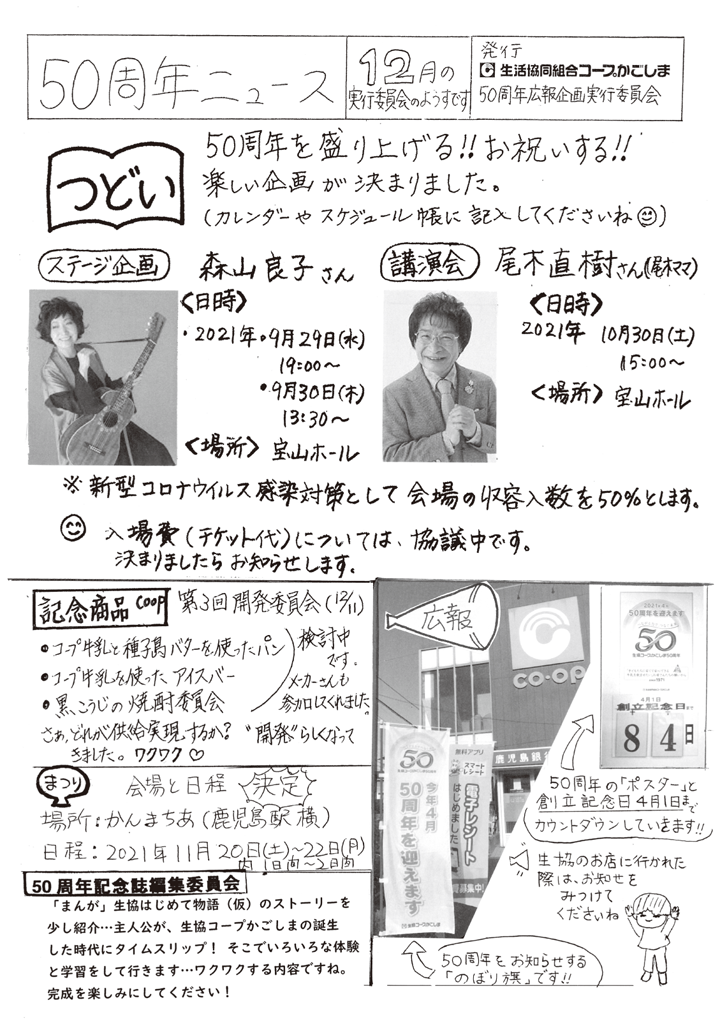 50周年ニュース
12月の
実行委員会のようすです
発行
生活協同組合コープかごしま
50周年広報企画実行委員会
つどい
50周年を盛り上げる!!お祝いする!!
楽しい企画が決まりました。
(カレンダーやスケジュール帳に記入してくださいね)
ステージ企画
森山良子さん
<日時>
・2021年・9月29日(水)
19:00〜
・9月30日(木)
13:30〜
<場所>宝山ホール
講演会
尾木直樹さん(尾木ママ)
<日時>
2021年 10月30日(土)
15:00〜
<場所>宝山ホール
※新型コロナウイルス感染対策として会場の収容人数を50%とします。
入場費(チケット代)については、協議中です。
決まりましたらお知らせします。
記念商品 coop
第3回開発委員会(12/11)
・コープ牛乳と種子島バターを使ったパン
・コープ牛乳を使ったアイスバー
・黒こうじの焼酎委員会
検討中
です。
メーカーさんも
参加してくれました。
さぁ、どれが供給実現するか?"開発"らしくなって
きました。ワクワク♡
まつり
会場と日程 決定
場所:かんまちあ(鹿児島駅横)
日程:2021年11月20日(土)〜22日(月)
内1日間〜2日間
50周年記念誌編集委員会
「まんが」生協はじめて物語(仮)のストーリーを
少し紹介…主人公が、生協コープかごしまの誕生
した時代にタイムスリップ! そこでいろいろな体験
と学習をして行きます…ワクワクする内容ですね。
完成を楽しみにしてください!
広報
co-op
鹿児島銀
50
今年4月
50周年を迎えます
生協コープかごしま
無料アプリ
スマート
レシート
電子レシート
はじめました
50周年を迎えます
50
4月1日
創立記念日まで
84日
50周年の「ポスター」と
創立記念日4月1日まで
カウントダウンしていきます!!
生協のお店に行かれた
際は、お知せを
みつけて
くださいね
50周年をお知らせする
「のぼり旗」です!!